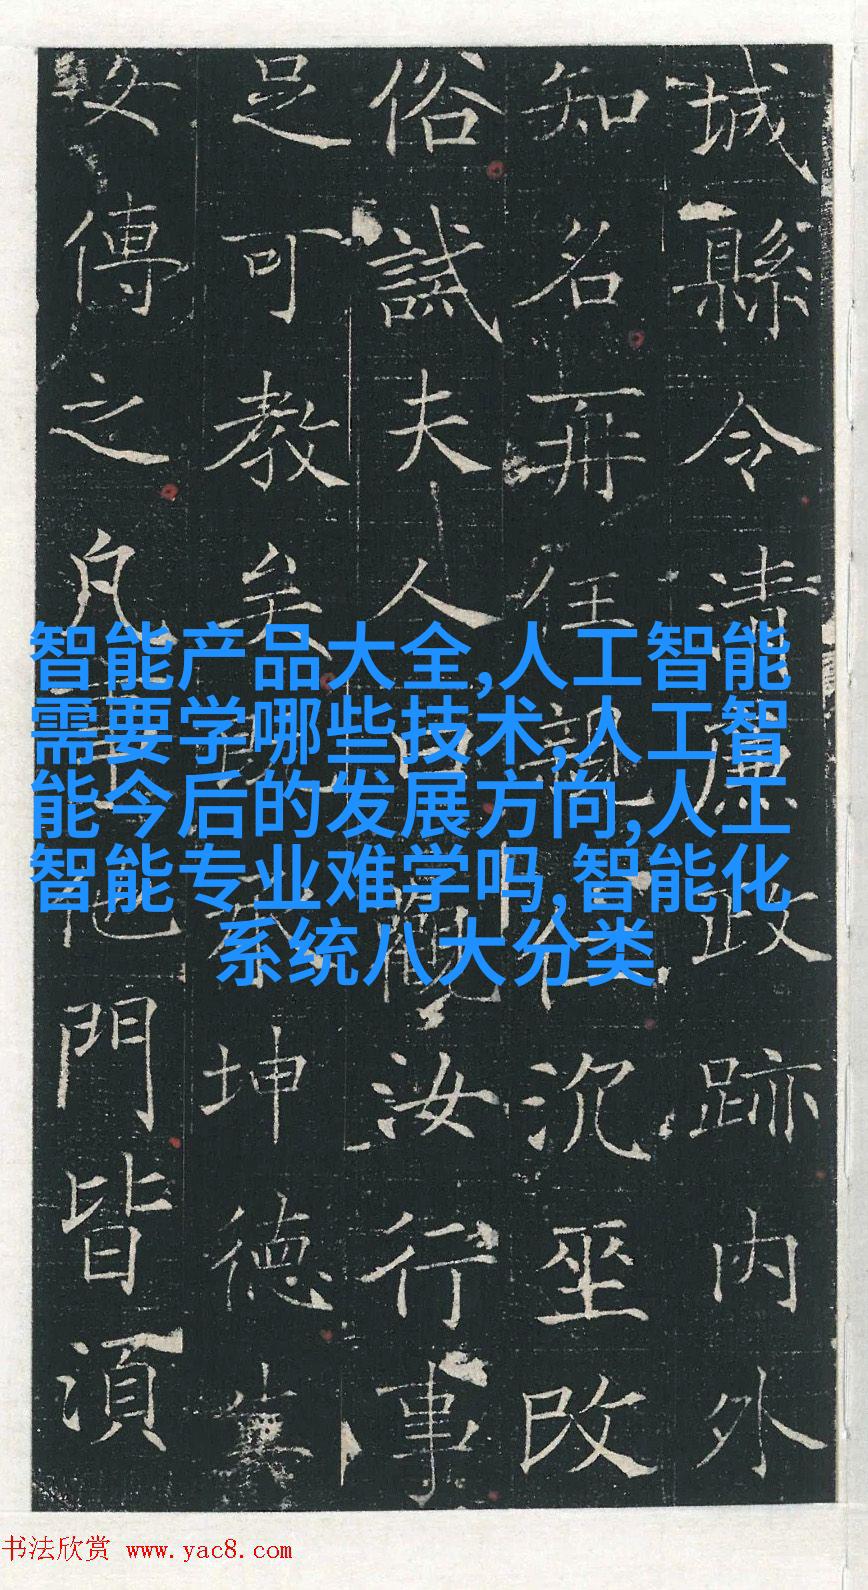 城縣令清廉政跡内外
知名再任沉坐改
俗試夫人曰觀汝行事
足可教矣坤德
傳之凡他門皆須
智能产品大全,人工智能
需要学哪些技术,人工智
能今后的发展方向,人工
智能专业难学吗,智能化
系统八大分类
书法欣赏 www.yac8.com